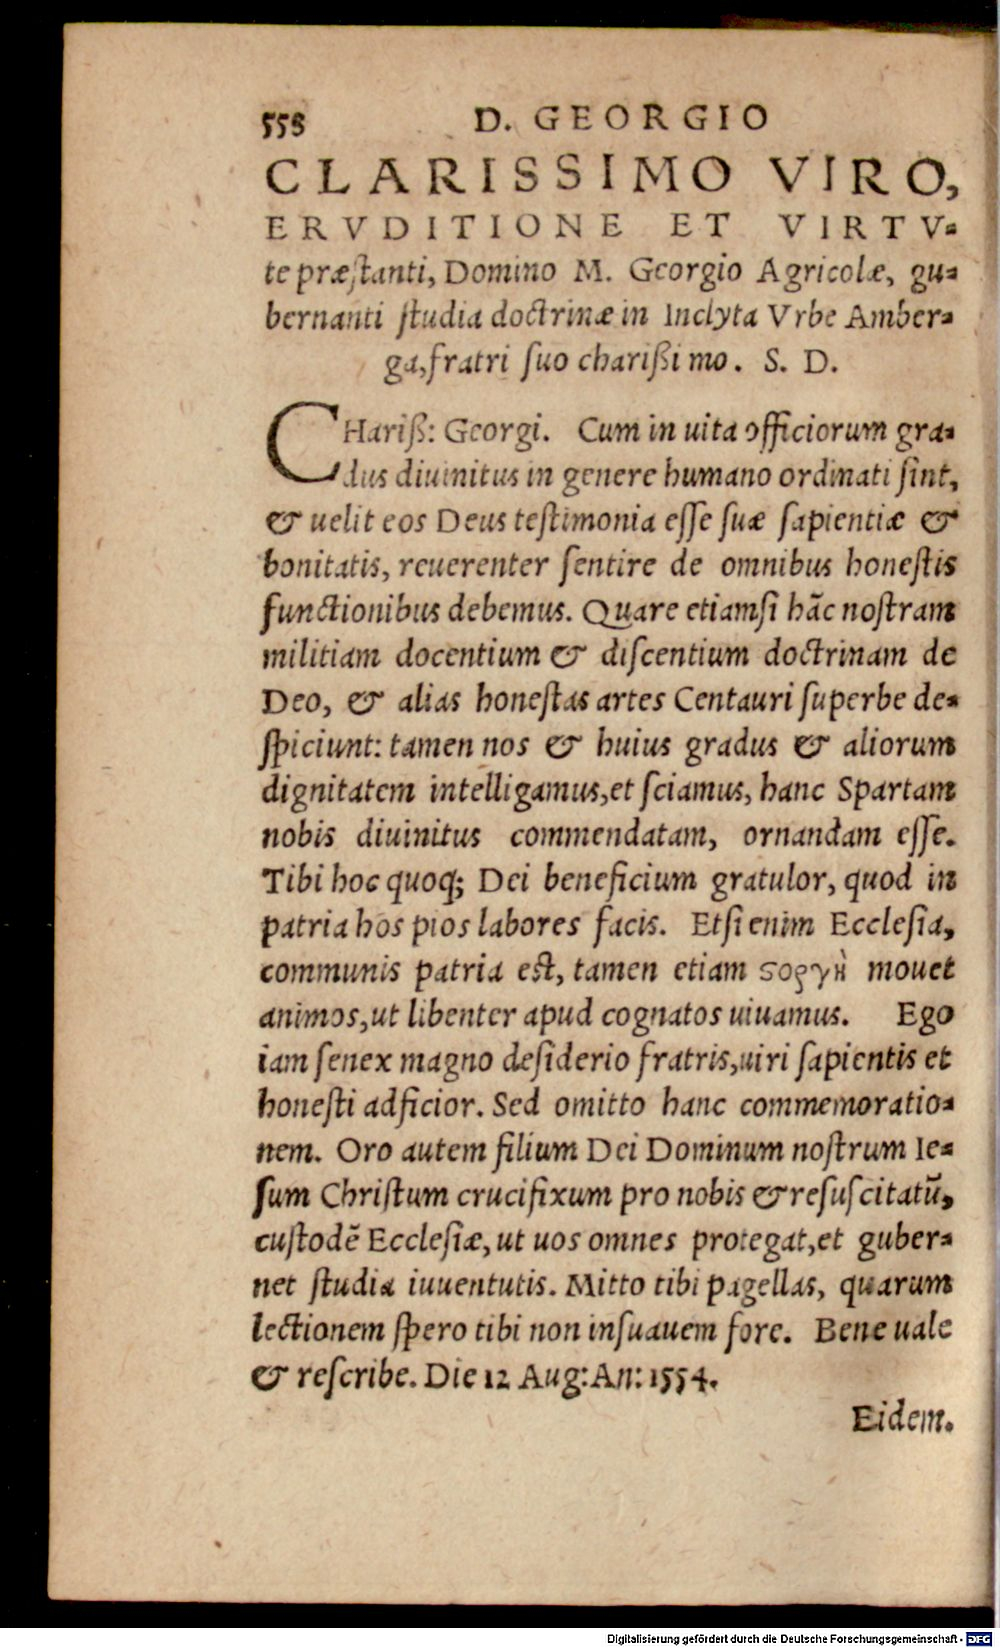 558 D. GEORGIO
CLARISSIMO VIRO,
ERVDITIONE ET VIRTV-
te præſtanti, Domino M. Georgio Agricolæ, gu-
bernanti ſtudia doctrinæ in Inclyta Vrbe Amber-
ga, fratri ſuo charißimo. S. D.
CHariß: Georgi. Cum in uita officiorum gra-
dus diuinitus in genere humano ordinati ſint,
& uelit eos Deus teſtimonia eſſe ſuæ ſapientiæ &
bonitatis, reuerenter ſentire de omnibus honeſtis
functionibus debemus. Quare etiamſi hāc noſtram
militiam docentium & diſcentium doctrinam de
Deo, & alias honeſtas artes Centauri ſuperbe de-
ſpiciunt: tamen nos & huius gradus & aliorum
dignitatem intelligamus, et ſciamus, hanc Spartam
nobis diuinitus commendatam, ornandam eſſe.
Tibi hoc quoq; Dei beneficium gratulor, quod in
patria hos pios labores facis. Etſi enim Eccleſia,
communis patria eſt, tamen etiam ϛοργὴ mouet
animos, ut libenter apud cognatos uiuamus. Ego
iam ſenex magno deſiderio fratris, uiri ſapientis et
honeſti adficior. Sed omitto hanc commemoratio-
nem. Oro autem filium Dei Dominum noſtrum Ie-
ſum Chriſtum crucifixum pro nobis & reſuſcitatū,
cuſtodē Eccleſiæ, ut uos omnes protegat, et guber-
net ſtudia iuuentutis. Mitto tibi pagellas, quarum
lectionem ſpero tibi non inſuauem fore. Bene uale
& reſcribe. Die 12 Aug: An: 1554.
Eidem.
Digitalisierung gefördert durch die Deutsche Forschungsgemeinschaft - DFG